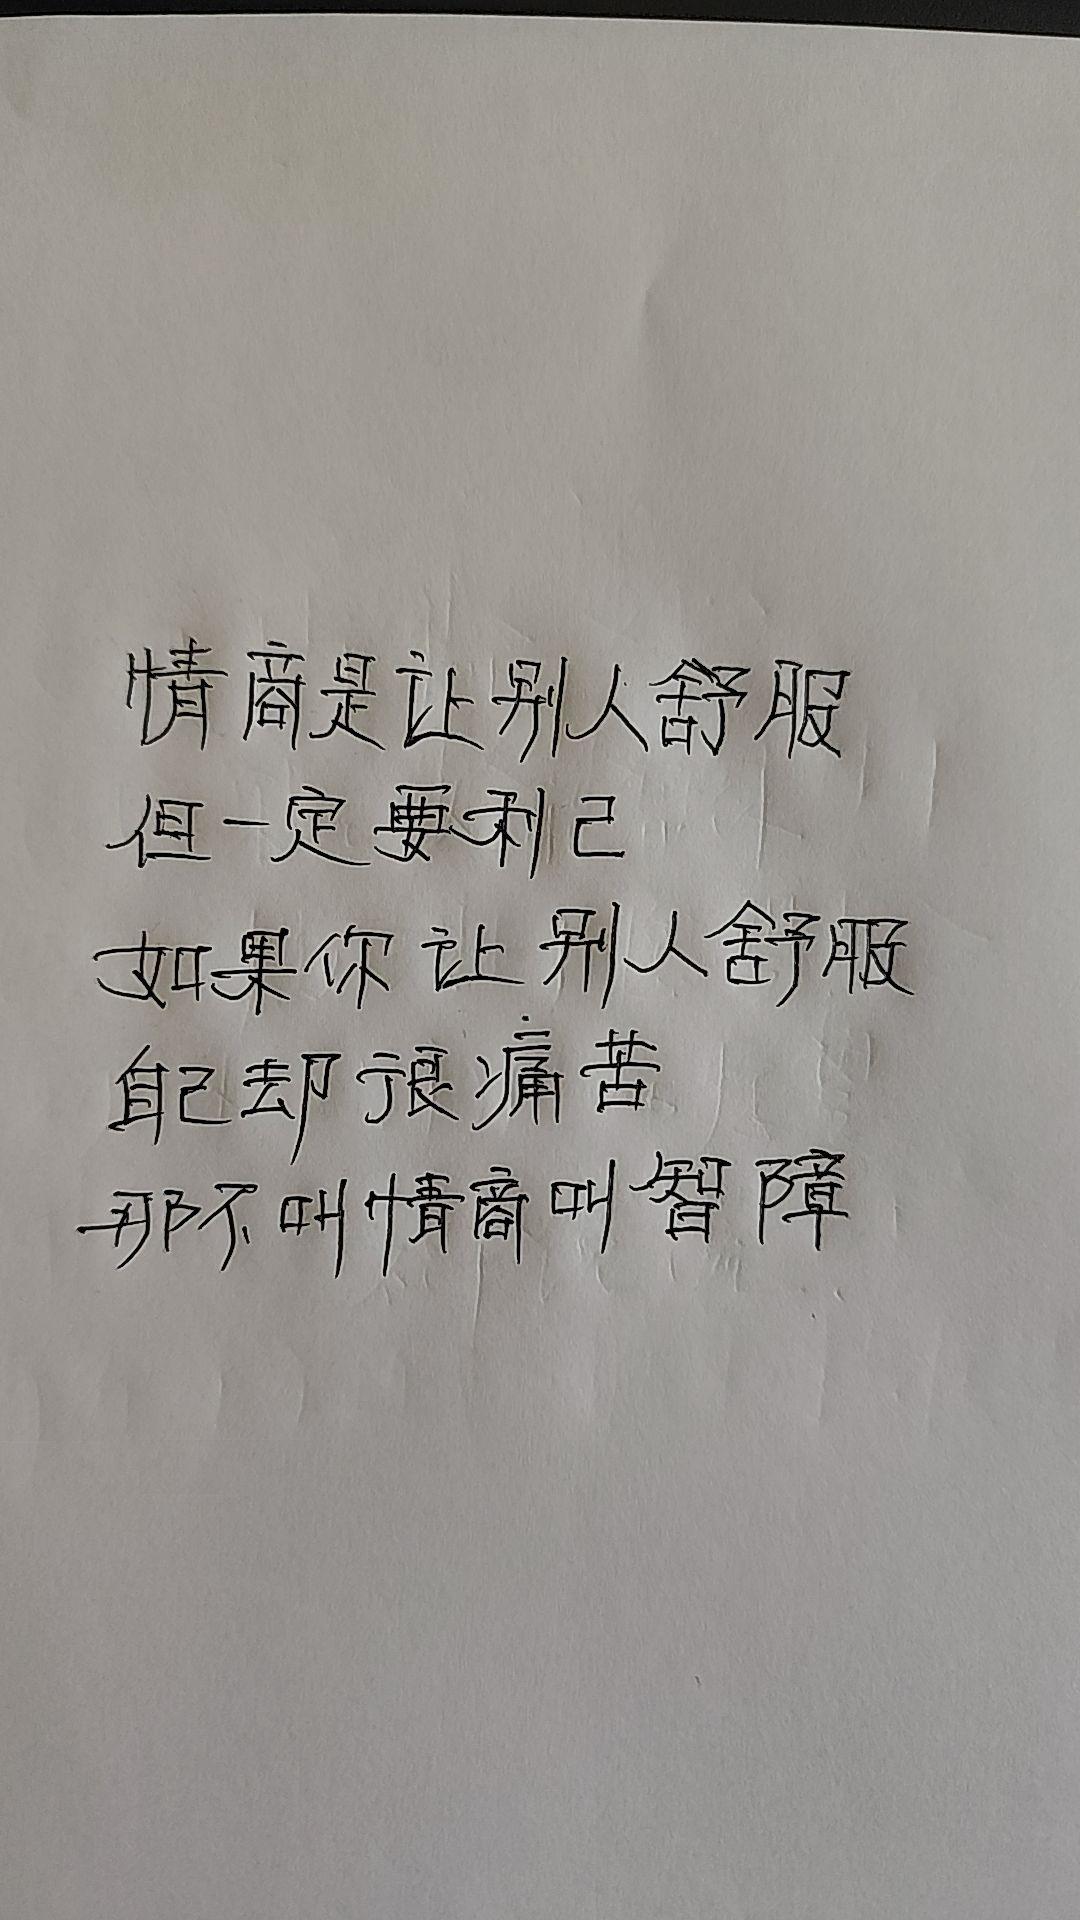 情商是让别人舒服
但一定要利己
如果你让别人舒服
自己却很痛苦
那不叫情商叫智障